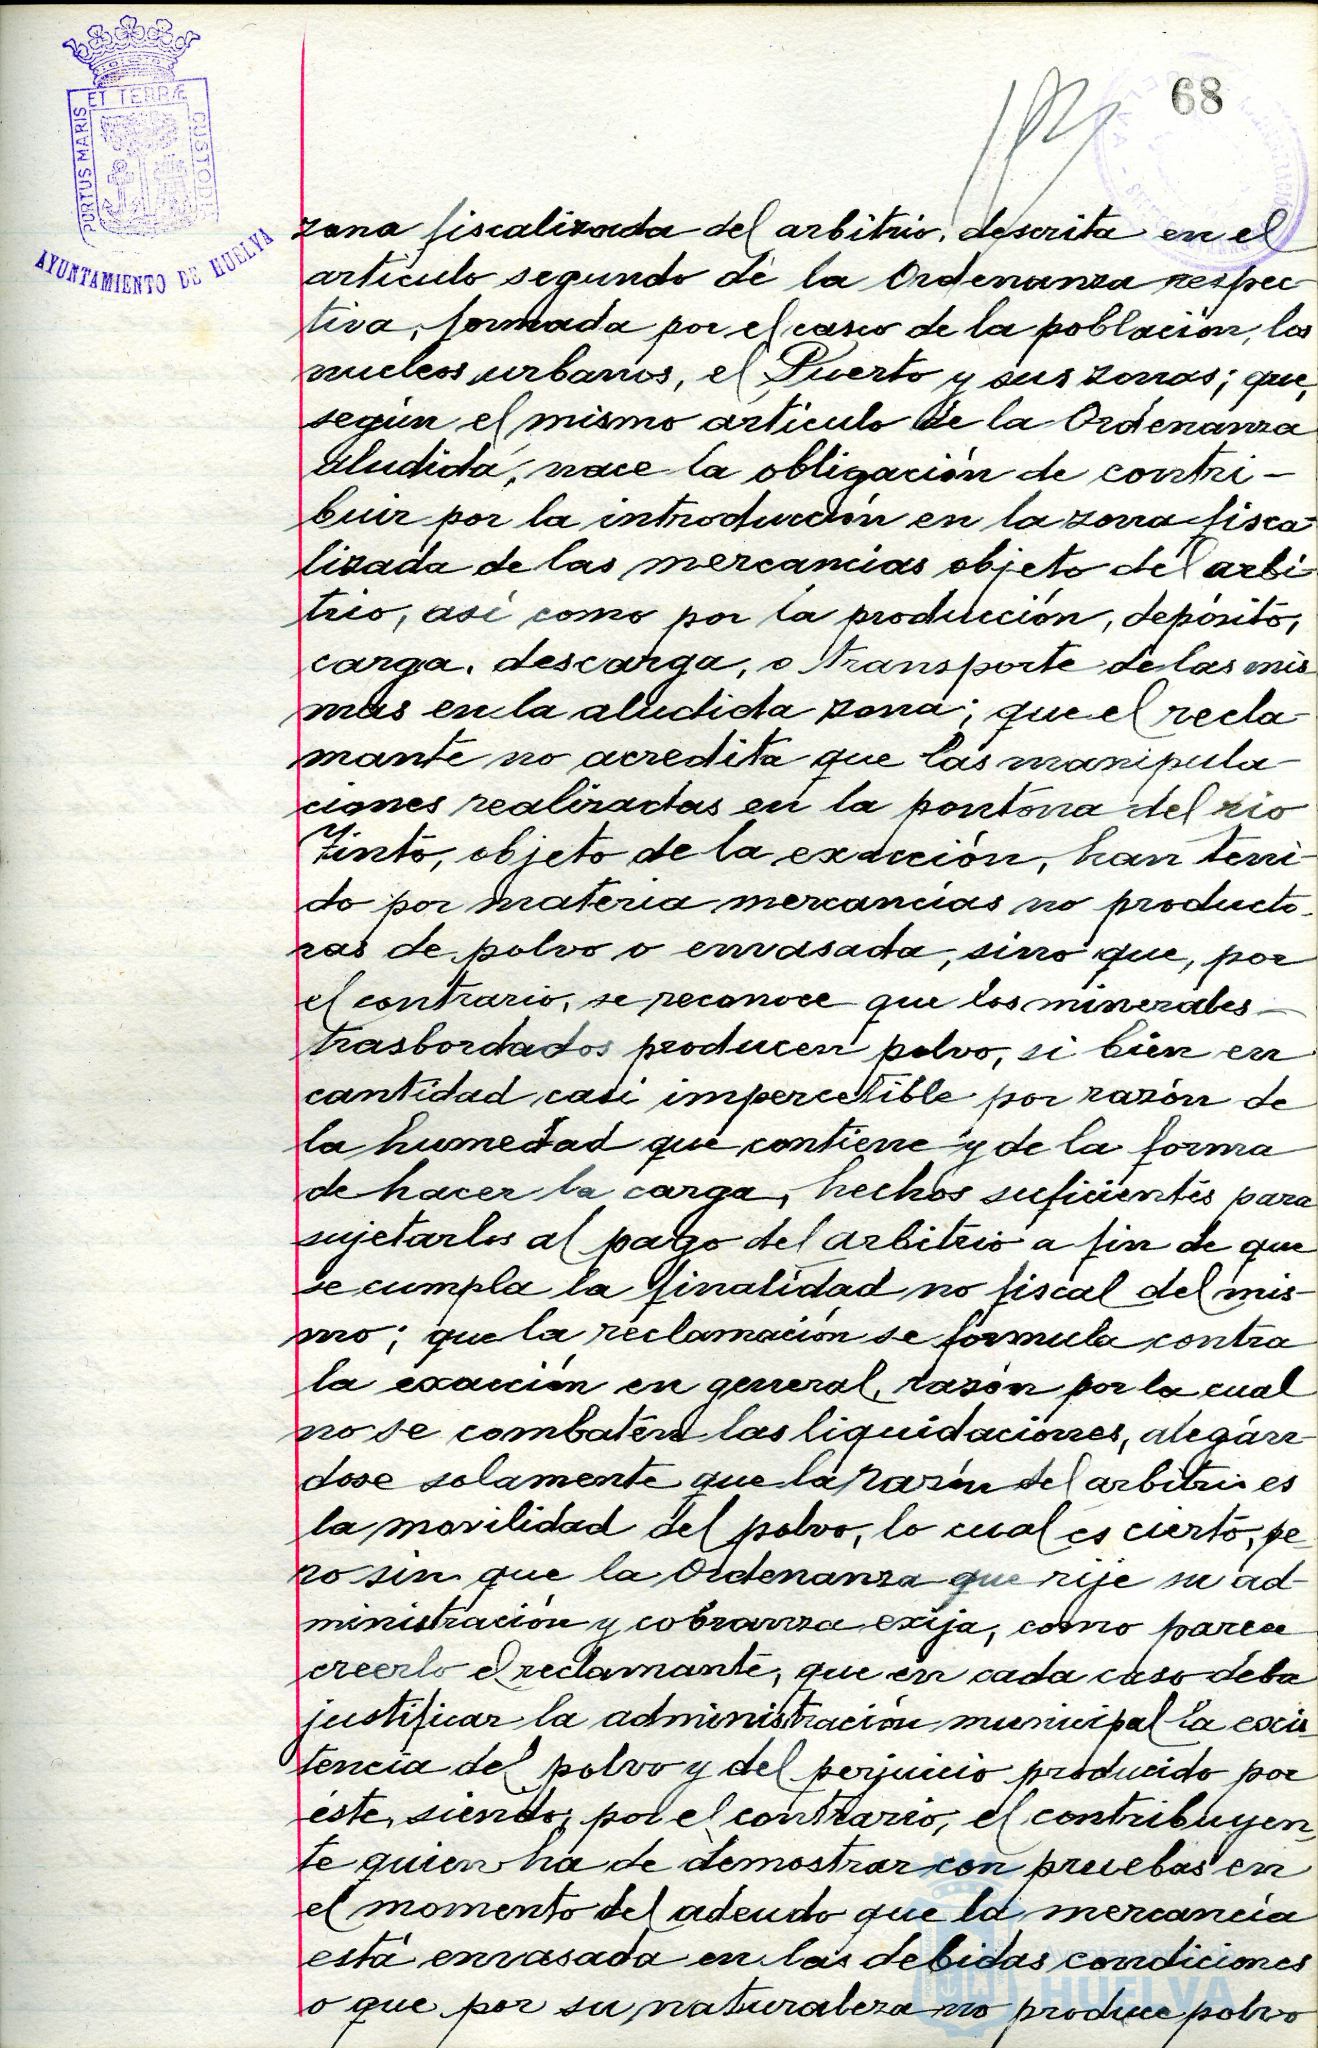 68
PORTUS MARIS
ET TERRÆ
CUSTODI
AYUNTAMIENTO DE HUELVA
zona fiscalizada del arbitrio, descrita en el
artículo segundo de la Ordenanza respec-
tiva, formada por el casco de la población, los
nucleos urbanos, el Puerto y sus zonas; que,
según el mismo artículo de la Ordenanza
aludida, nace la obligación de contri-
buir por la introducción en la zona fisca-
lizada de las mercancias objeto del arbi-
trio, así como por la producción, depósito,
carga, descarga, o transporte de las mis-
mas en la aludida zona; que el recla-
mante no acredita que las manipula-
ciones realizadas en la pontona del rio
Tinto, objeto de la exacción, han teni-
do por materia mercancías no producto-
ras de polvo o envasada, sino que, por
el contrario, se reconoce que los minerales
trasbordados producen polvo, si bien en
cantidad casi impercetible por razón de
la humedad que contiene y de la forma
de hacer la carga, hechos suficientes para
sujetarlos al pago del arbitrio a fin de que
se cumpla la finalidad no fiscal del mis-
mo; que la reclamación se formula contra
la exacción en general, razón por la cual
no se combaten las liquidaciones, alegán-
dose solamente que la razón del arbitrio es
la movilidad del polvo, lo cual es cierto, pe-
ro sin que la Ordenanza que rije su ad-
ministración y cobranza exija, como parece
creerlo el reclamante, que en cada caso deba
justificar la administración municipal la exis-
tencia del polvo y del perjuicio producido por
éste, siendo, por el contrario, el contribuyen-
te quien ha de demostrar con pruebas en
el momento del adeudo que la mercancía
está envasada en las debidas condiciones
o que por su naturaleza no produce polvo
Ayuntamiento de
HUELVA